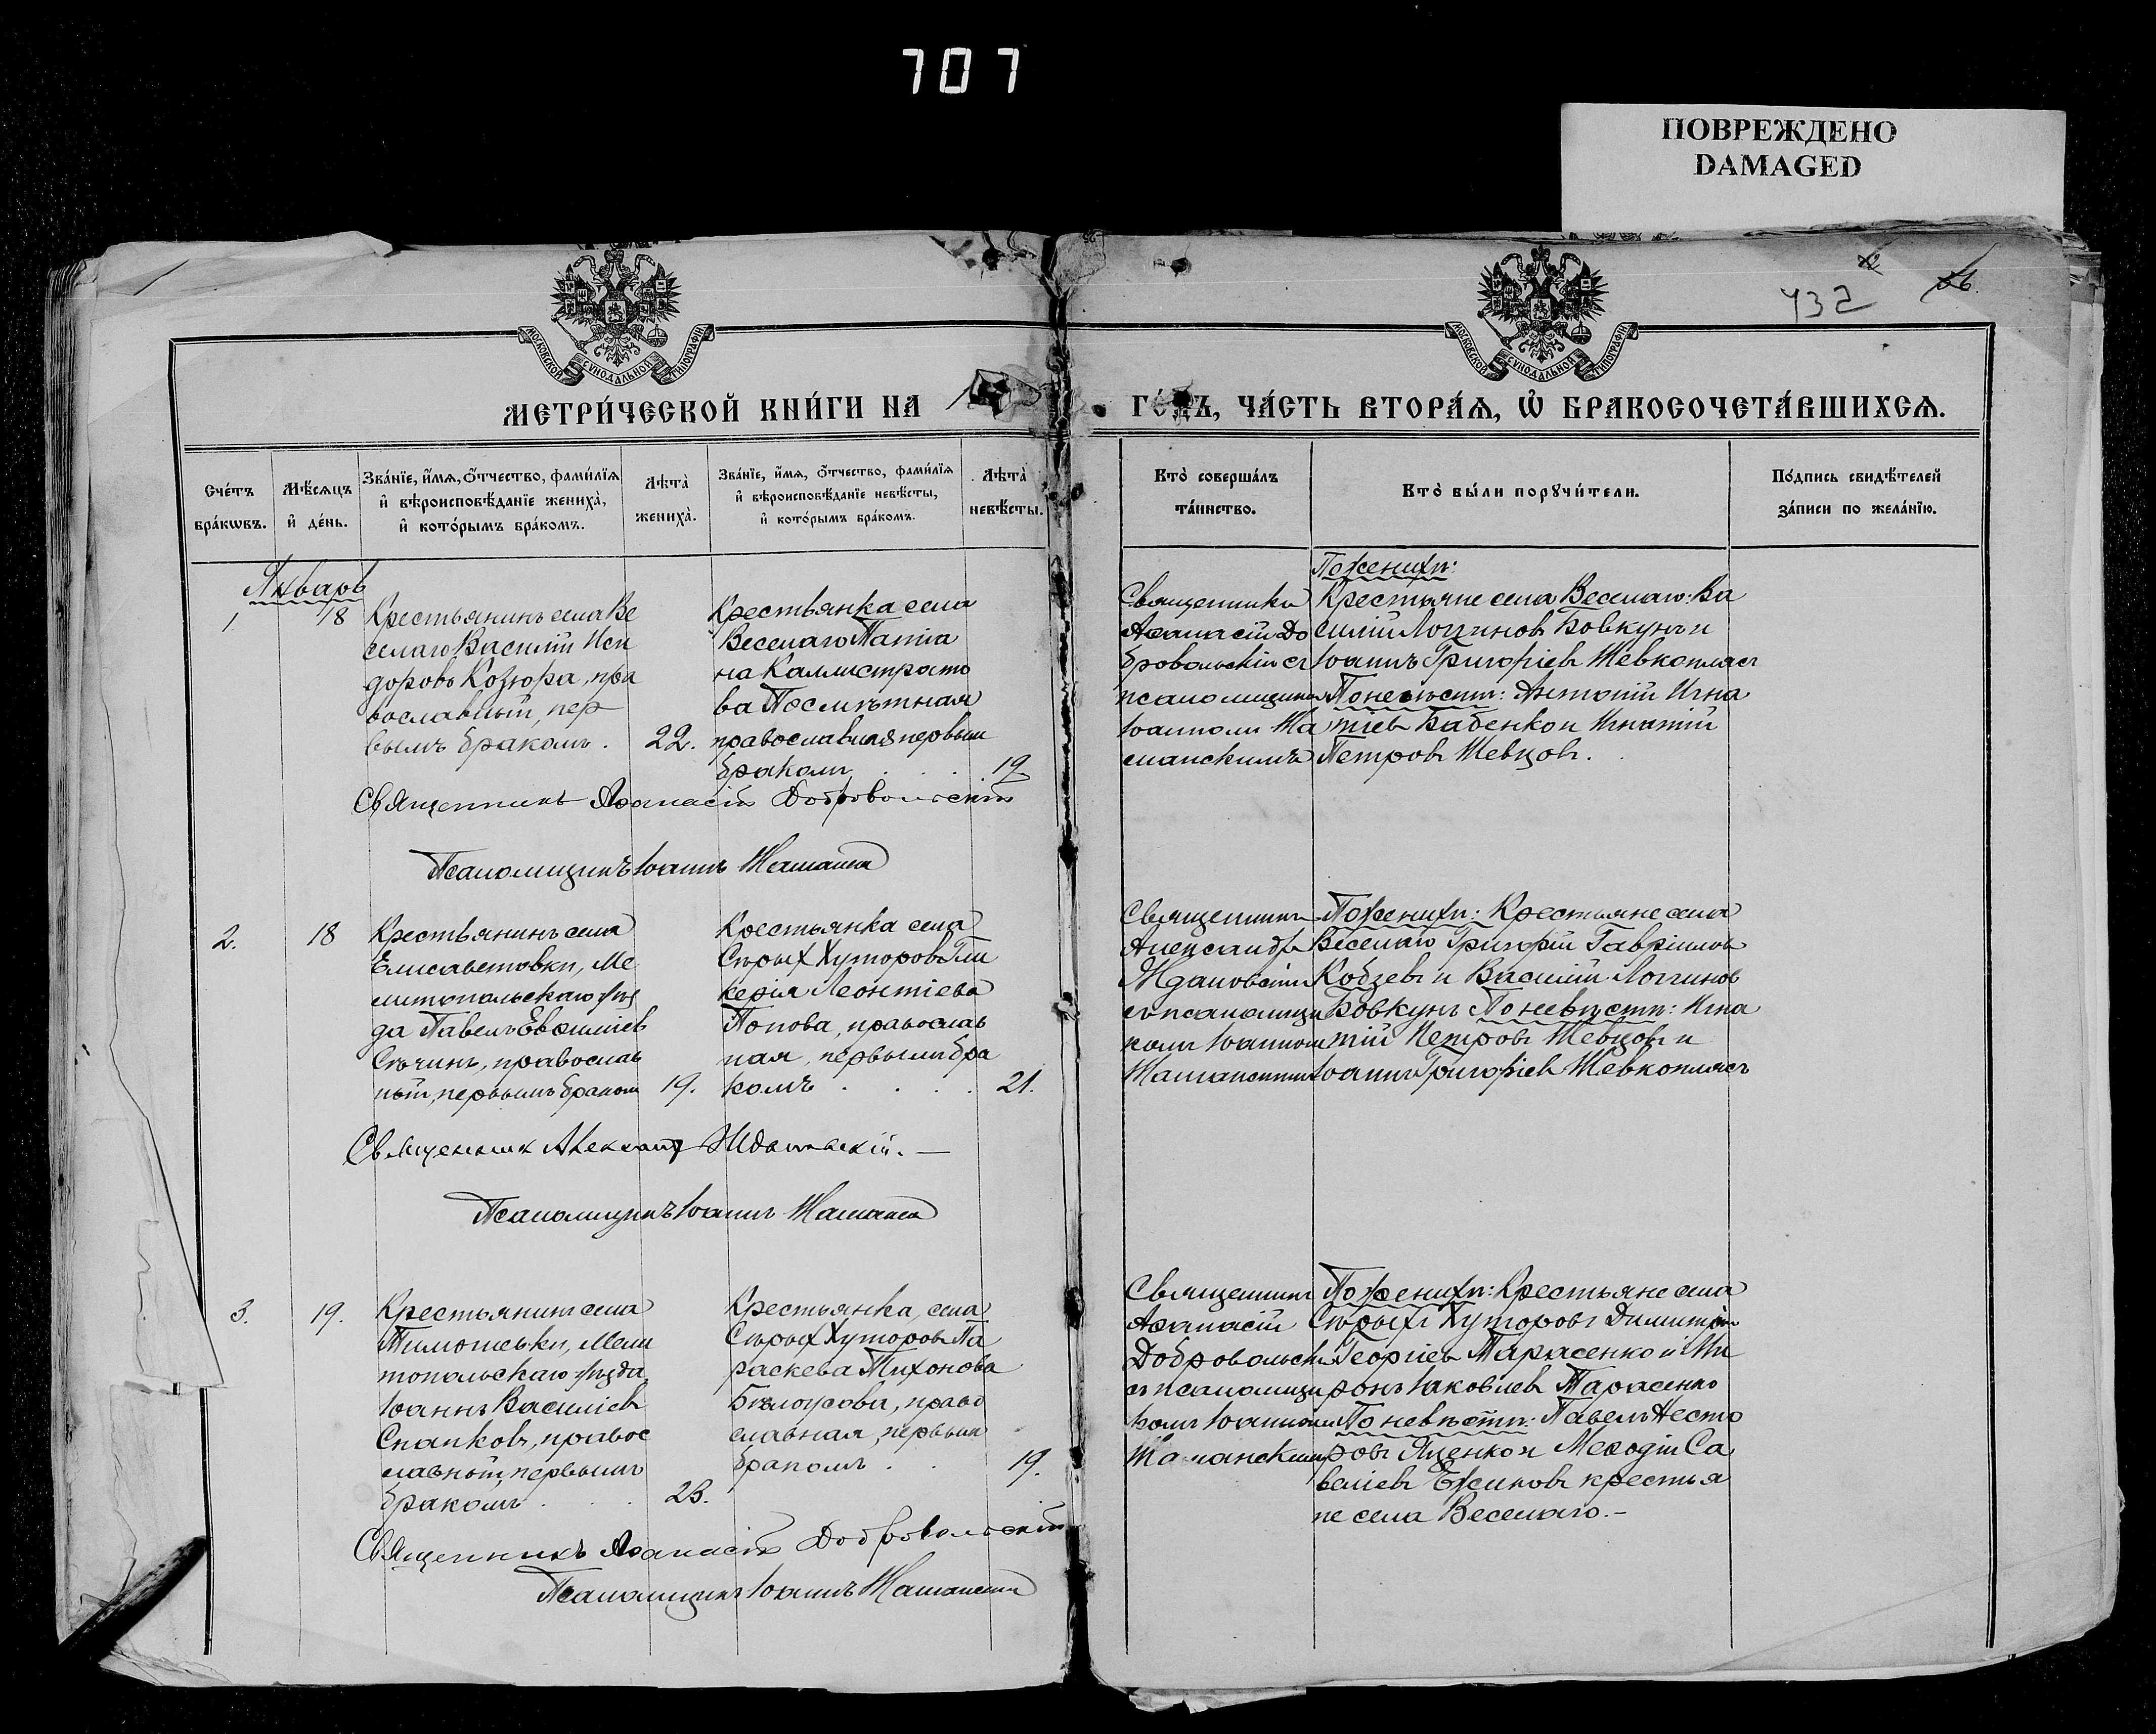 707
ПОВРЕЖДЕНО
DAMAGED
432
МОСКОВСКОЙ СѴНОДАЛЬНОЙ ТИПОГРАФІИ
МОСКОВСКОЙ СѴНОДАЛЬНОЙ ТИПОГРАФІИ
МЕТРИ́ЧЕСКОЙ КНИ́ГИ НА
ГО́ДЪ, ЧА́СТЬ ВТОРА́Ѧ, Ѡ҆ БРАКОСОЧЕТА́ВШИХСѦ.
Сче́тъ бра́кѡвъ.
Мѣ́сѧцъ и҆ де́нь.
Зва́нїе, и҆́мѧ, ѻ҆́тчество, фами́лїѧ
и҆ вѣроисповѣ́данїе жениха̀,
и҆ кото́рымъ бра́комъ.
Лѣта̀ жениха̀.
Зва́нїе, и҆́мѧ, ѻ҆́тчество, фами́лїѧ
и҆ вѣроисповѣ́данїе невѣ́сты,
и҆ кото́рымъ бра́комъ.
Лѣта̀ невѣ́сты.
Кто̀ соверша́лъ
та́инство.
Кто̀ бы́ли порꙋчи́тели.
По́дпись свидѣ́телей
за́писи по жела́нїю.
Январь
1.
18
Крестьянинъ села Ве
селаго Василій Иси
доровъ Козюра, пра
вославный, пер
вымъ бракомъ.
22.
Крестьянка села
Веселаго Татiа
на Каллистрато
ва
православная первым
бракомъ
19
Священникъ
Аѳанасій До
бровольскій съ
псаломщикомъ
Іоанномъ Жа
манскимъ
По женихѣ:
Крестьяне села Веселаго: Ва
силій Логгиновъ Бовкунъ и
Іоаннъ Григоріевъ Шевкоплясъ
По невѣстѣ: Антоній Игна
тіевъ Бабенко и Игнатій
Петровъ Шевцовъ.
Священникъ Аѳанасій Добровольскій
Псаломщикъ Іоаннъ
2.
18
Крестьянинъ села
Елисаветовки, Ме
литопольскаго уѣз
да Павелъ Евѳиміевъ
Сѣчинъ, православ
ный, первымъ бракомъ
19.
Крестьянка села
Сѣрыхъ Хуторовъ Гли
керія Леонтіева
Попова, православ
ная, первымъ бра
комъ
21.
Священникъ
Александръ
Ждановскій
съ псаломщи
комъ Іоанномъ
По женихѣ: Крестьяне села
Веселаго Григорій Гавріиловъ
Кобзевъ и Василій Логгиновъ
Бовкунъ По невѣстѣ: Игна
тій Петровъ Шевцовъ и
Іоаннъ Григоріевъ Шевкоплясъ
Священникъ Александръ Ждановскій.—
Псаломщикъ Іоаннъ
3.
19.
Крестьянинъ села
Тимошевки, Мели
топольскаго уѣзда,
Іоаннъ Василіевъ
правос
лавный, первымъ
бракомъ
23.
Крестьянка, села
Сѣрыхъ Хуторовъ Па
раскева Тихонова
Бѣлоусова, право
славная, первымъ
бракомъ
19.
Священникъ
Аѳанасій
Добровольскій
съ псаломщи
комъ Іоанномъ
По женихѣ: Крестьяне села
Сѣрыхъ Хуторовъ Димитрій
Георгіевъ Тарасенко и Ми
ронъ Іаковлевъ Тарасенко
По невѣстѣ: Павелъ Несто
ровъ Яценко и Меѳодій Са
веліевъ Ежиковъ крестья
не села Веселаго.—
Священникъ Аѳанасій Добровольскій
Псаломщикъ Іоаннъ